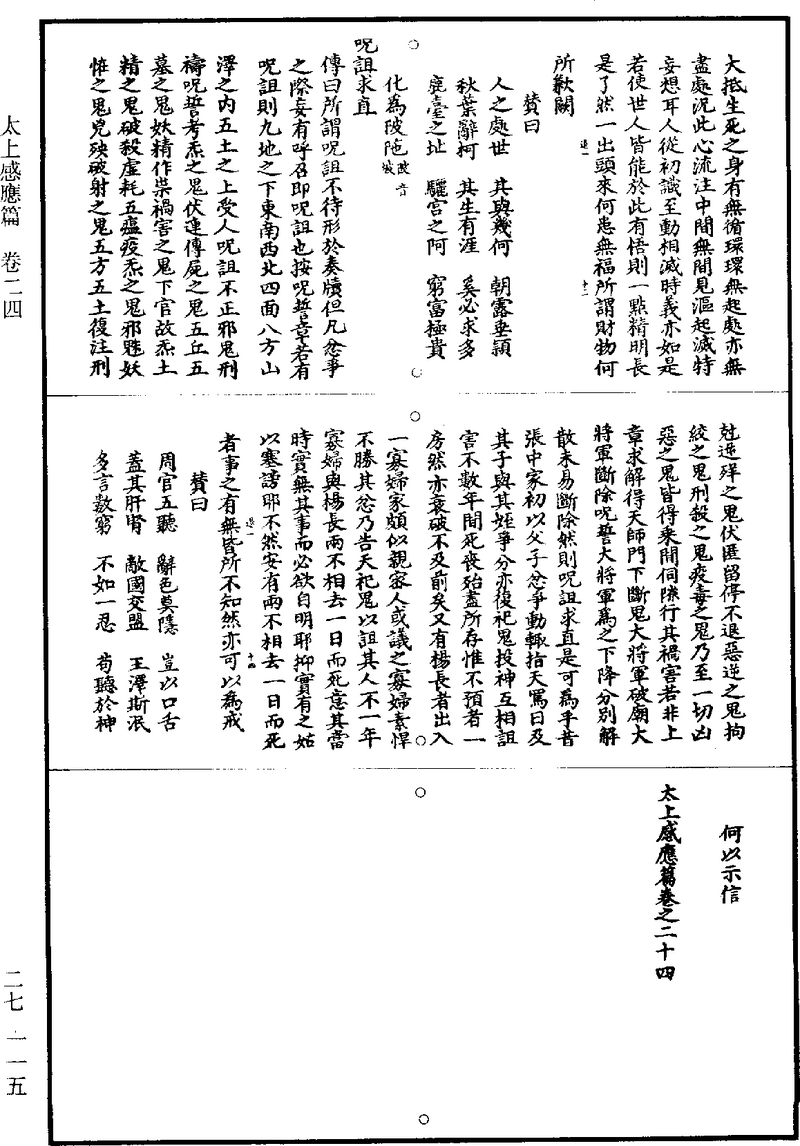 大抵生死之身有無循環環無起處亦無
盡處況此心流注中間無間見漚起滅特
妄想耳人從初識至動相滅時義亦如是
若使世人皆能於此有悟則一點精明長
是了然一出頭來何患無福所謂財物何
所歉闕
贊曰
人之處世 其與幾何 朝露垂穎
秋葉辭柯 其生有涯 奚必求多
鹿臺之址 驪宮之阿 窮富極貴
化為陂陁
呪詛求直
傳曰所謂呪詛不待形於奏牘但凡忿爭
之際妄有呼召即呪詛也按呪誓章若有
呪詛則九地之下東南西北四面八方山
澤之內五土之上受人呪詛不正邪鬼刑
禱呪誓考炁之鬼伏連傳屍之鬼五丘五
墓之鬼妖精作祟禍害之鬼下官故炁土
精之鬼破殺虛耗五瘟疫炁之鬼邪魅妖
恠之鬼兇殃破射之鬼五方五土復注刑
尅逆殃之鬼伏匿留停不退惡逆之鬼拘
絞之鬼刑殺之鬼疫毒之鬼乃至一切凶
惡之鬼皆得乘間伺隙行其禍害若非上
章求解得天師門下斷鬼大將軍破廟大
將軍斷除呪誓大將軍為之下降分別解
散未易斷除然則呪詛求直是可為乎昔
張中家初以父子忿爭動輒指天罵日及
其子與其姪爭分亦復祀鬼投神互相詛
害不數年間死喪殆盡所存惟不預者一
房然亦衰破不及前矣又有楊長者出入
一寡婦家頗似親密人或議之寡婦素悍
不勝其忿乃告天祀鬼以詛其人不一年
寡婦與楊長兩不相去一日而死意其當
時實無其事而必欲自明耶抑實有之姑
以塞謗耶不然安有兩不相去一日而死
者事之有無皆所不知然亦可以為戒
贊曰
周官五聽 辭色莫隱 豈以口舌
蓋其肝腎 敵國交盟 王澤斯泯
多言數窮 不如一忍 苟聽於神
何以示信
太上感應篇卷之二十四
太上感應篇 卷二四
二七 一一五